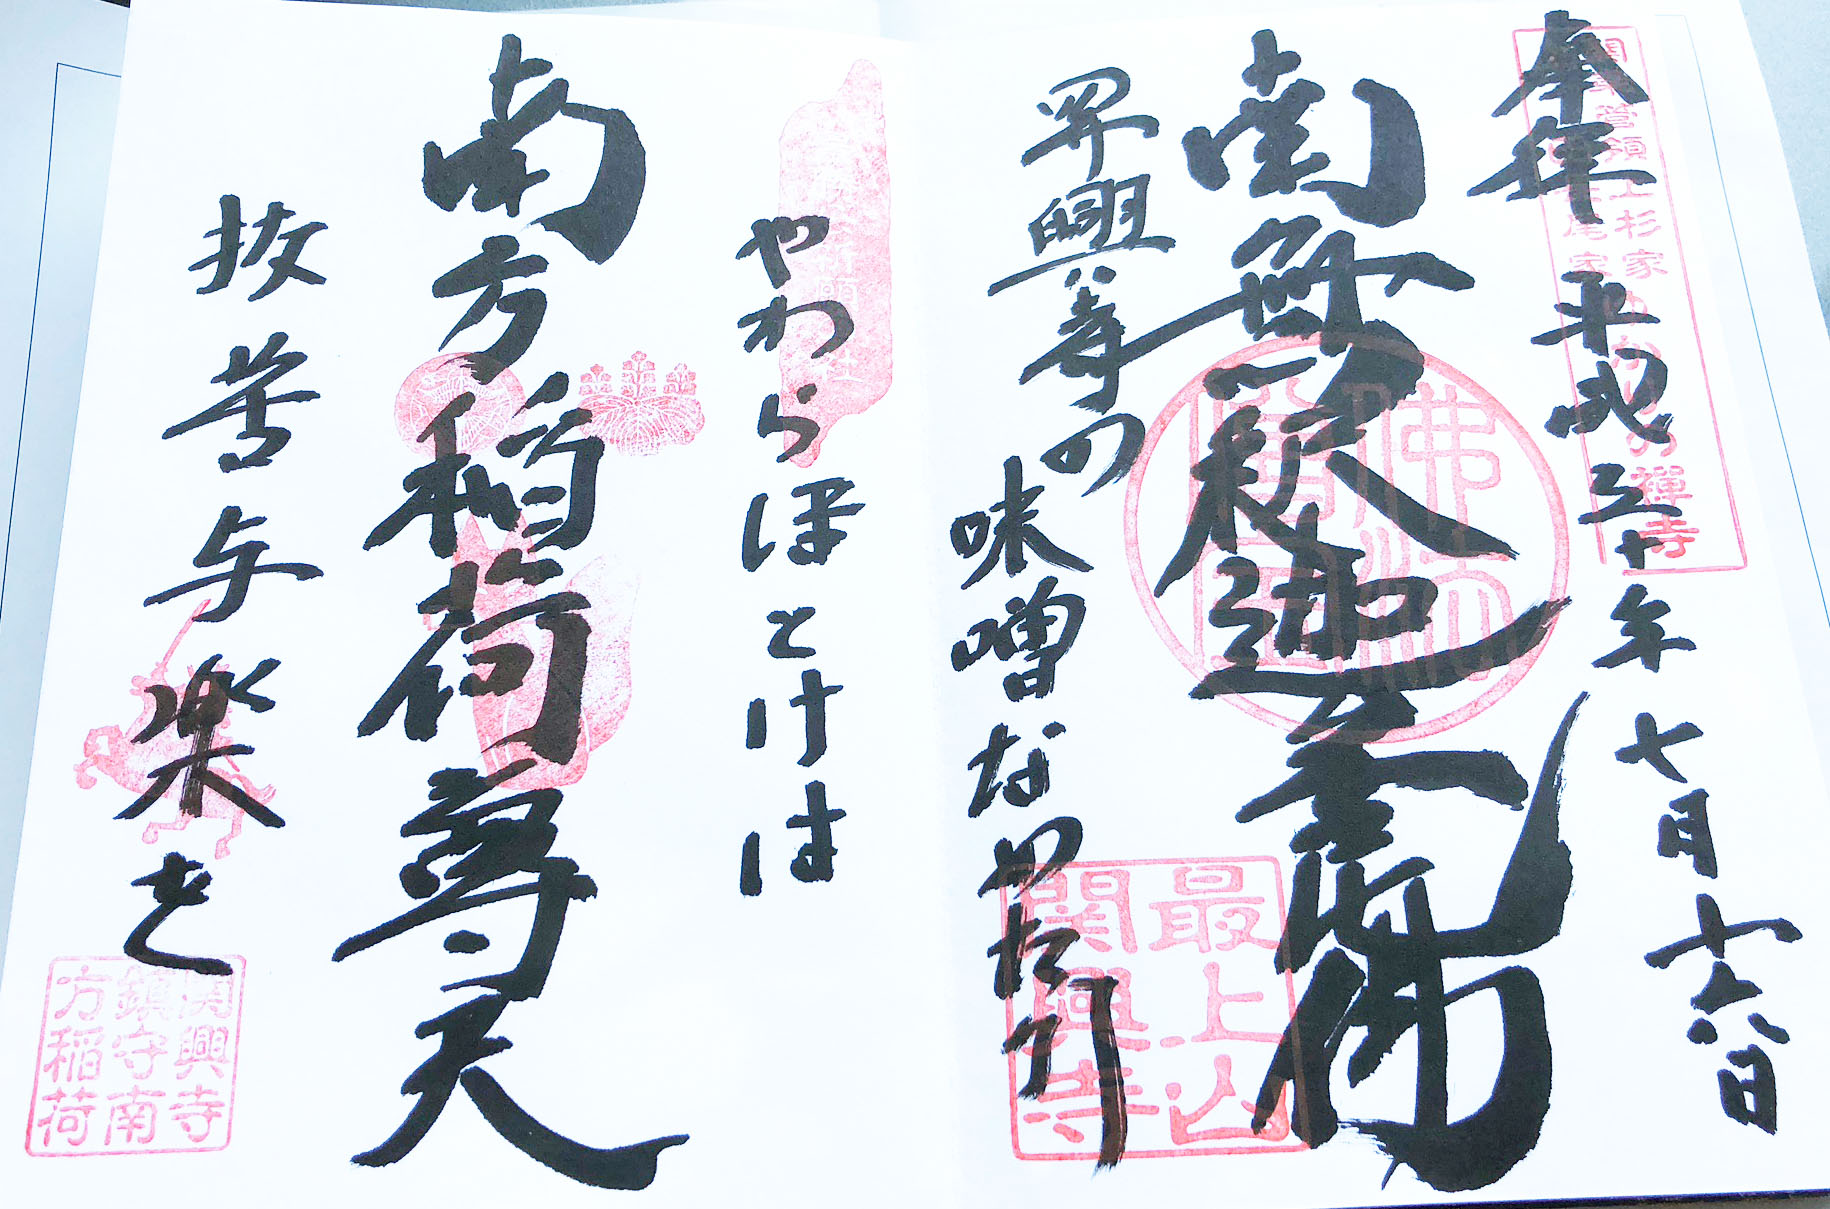 奉拝 平成三十年七月十六日
関東管領上杉家
長尾家ゆかりの禅寺
南無釈迦牟尼佛
佛法
関興寺の味噌なめたか
最上山
関興寺
やわらほとけは
南方稲荷尊天
抜苦与楽を
関興寺
鎮守南
方稲荷